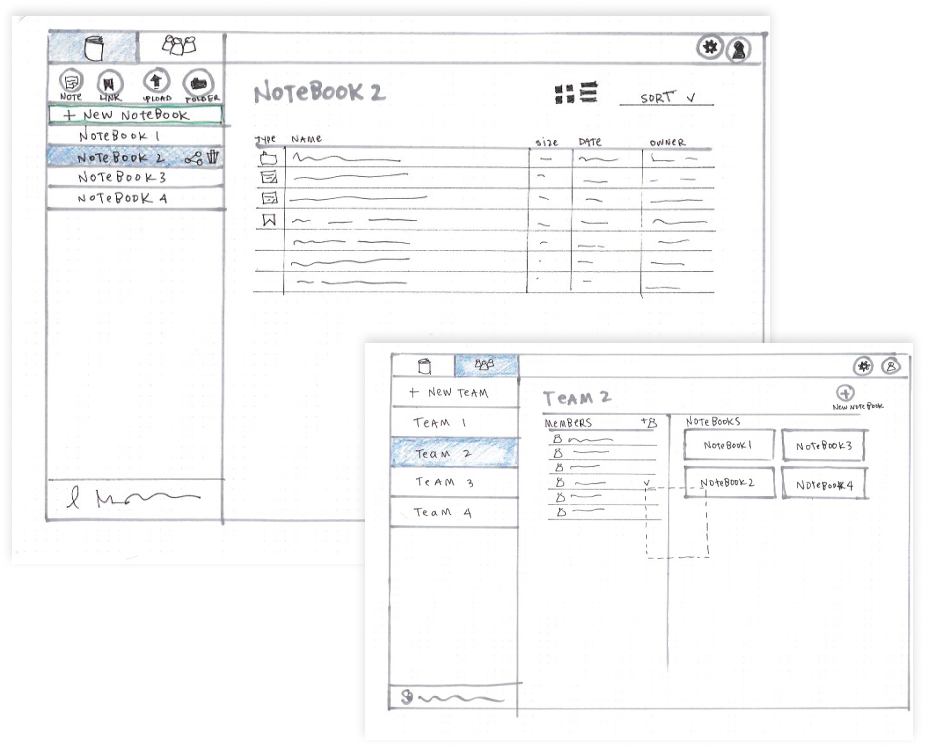 NOTE LINK UPLOAD FOLDER
+ NEW NOTEBOOK
NOTEBOOK 1
NOTEBOOK 2
NOTEBOOK 3
NOTEBOOK 4
NOTEBOOK 2
SORT
TYPE NAME SIZE DATE OWNER
+ NEW TEAM
TEAM 1
TEAM 2
TEAM 3
TEAM 4
TEAM 2
NEW NOTEBOOK
MEMBERS + NOTEBOOKS
NOTEBOOK 1 NOTEBOOK 3
NOTEBOOK 2 NOTEBOOK 4